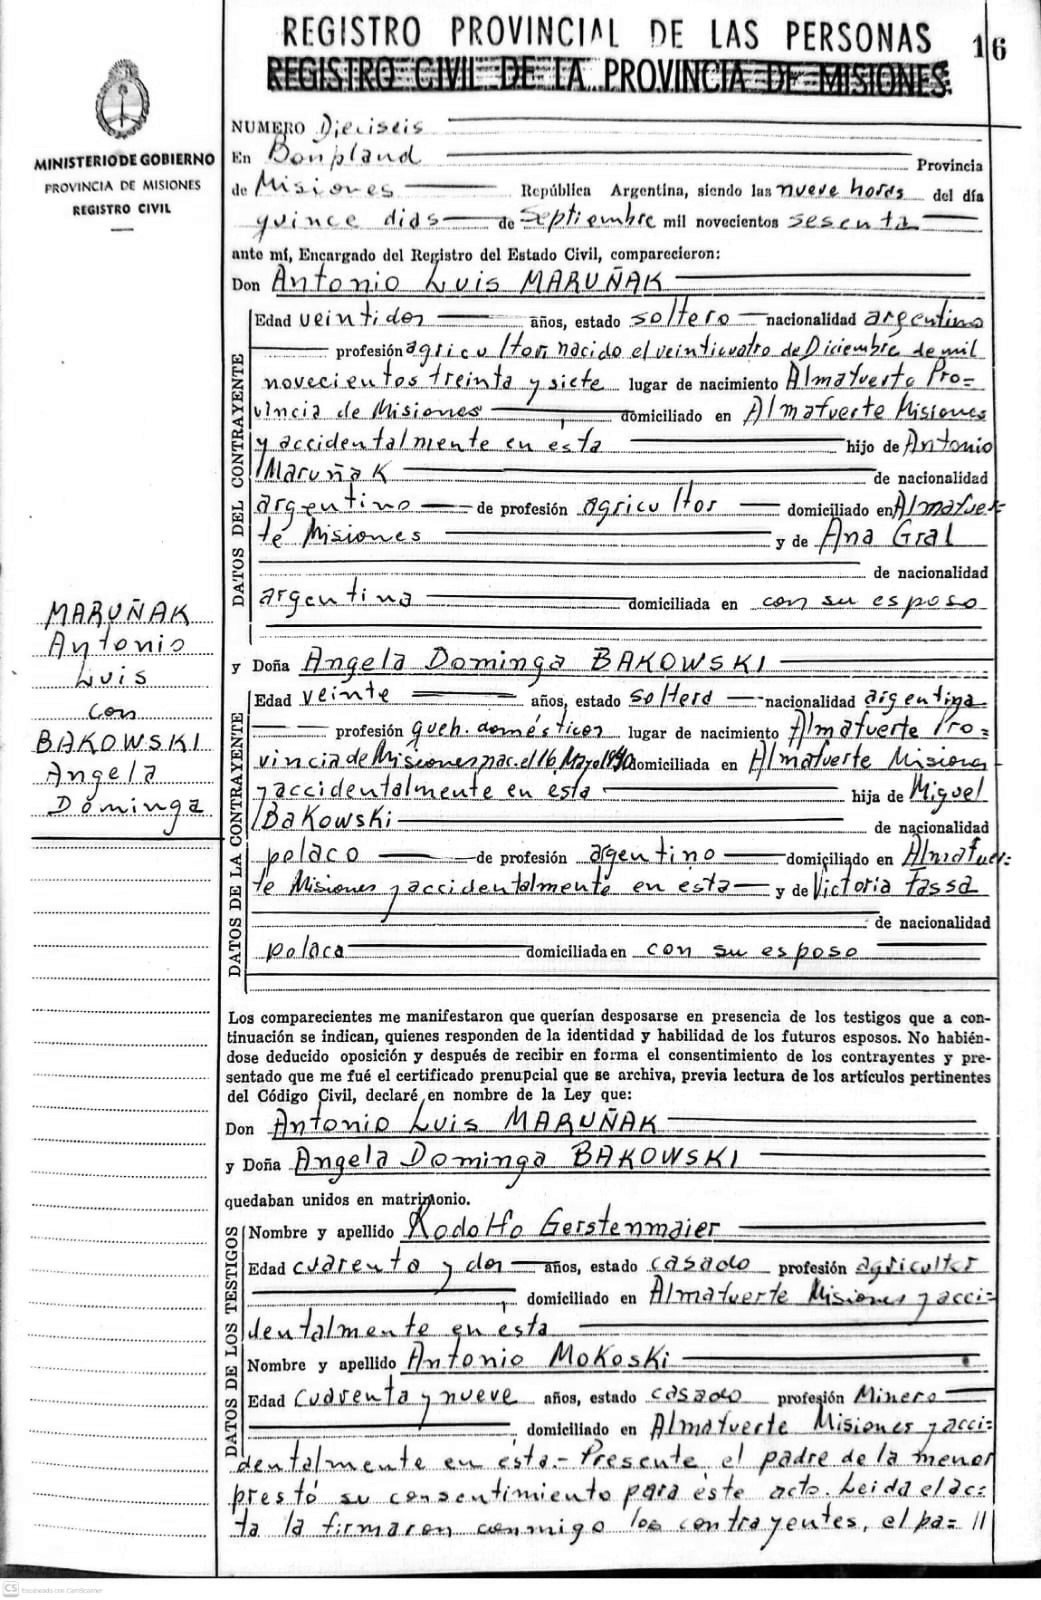 REGISTRO PROVINCIAL DE LAS PERSONAS
16
REGISTRO CIVIL DE LA PROVINCIA DE MISIONES
MINISTERIO DE GOBIERNO
PROVINCIA DE MISIONES
REGISTRO CIVIL
NUMERO Dieciseis
En Bonpland Provincia
de Misiones República Argentina, siendo las nueve horas del día
quince dias de Septiembre mil novecientos sesenta
ante mí, Encargado del Registro del Estado Civil, comparecieron:
Don Antonio Luis MARUÑAK
DATOS DEL CONTRAYENTE
Edad veintidos años, estado soltero nacionalidad argentino
profesión agricultor, nacido el veinticuatro de Diciembre de mil
novecientos treinta y siete lugar de nacimiento Almafuerte Pro=
vincia de Misiones domiciliado en Almafuerte Misiones
y accidentalmente en esta hijo de Antonio
Maruñak de nacionalidad
argentino de profesión agricultor domiciliado en Almafuer=
te Misiones y de Ana Gral
de nacionalidad
argentina domiciliada en con su esposo
MARUÑAK
Antonio
Luis
con
BAKOWSKI
Angela
Dominga
y Doña Angela Dominga BAKOWSKI
DATOS DE LA CONTRAYENTE
Edad veinte años, estado soltera nacionalidad argentina
profesión queh. domésticos lugar de nacimiento Almafuerte Pro=
vincia de Misiones nac. el 16 Mayo 1940 domiciliada en Almafuerte Misiones
y accidentalmente en esta hija de Miguel
Bakowski de nacionalidad
polaco de profesión argentino domiciliado en Almafuer=
te Misiones y accidentalmente en esta y de Victoria Tassa
de nacionalidad
polaca domiciliada en con su esposo
Los comparecientes me manifestaron que querían desposarse en presencia de los testigos que a con-
tinuación se indican, quienes responden de la identidad y habilidad de los futuros esposos. No habién-
dose deducido oposición y después de recibir en forma el consentimiento de los contrayentes y pre-
sentado que me fué el certificado prenupcial que se archiva, previa lectura de los artículos pertinentes
del Código Civil, declaré en nombre de la Ley que:
Don Antonio Luis MARUÑAK
y Doña Angela Dominga BAKOWSKI
quedaban unidos en matrimonio.
DATOS DE LOS TESTIGOS
Nombre y apellido Rodolfo Gerstenmaier
Edad cuarenta y dos años, estado casado profesión agricultor
domiciliado en Almafuerte Misiones y acci=
dentalmente en esta
Nombre y apellido Antonio Mokoski
Edad cuarenta y nueve años, estado casado profesión Minero
domiciliado en Almafuerte Misiones y acci=
dentalmente en esta.- Presente el padre de la menor
prestó su consentimiento para éste acto. Leida el ac=
ta la firmaron conmigo los contrayentes, el pa= //
CS Escaneado con CamScanner